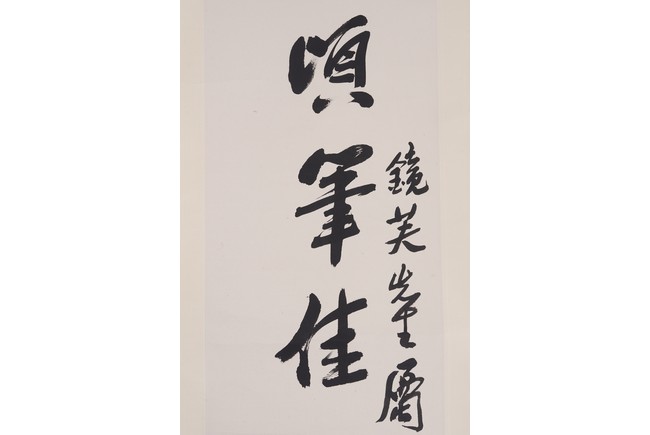 鏡芙先生屬
筆佳